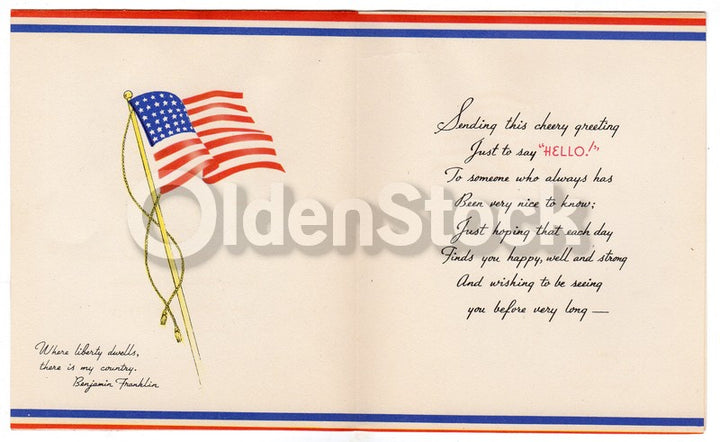 Where liberty dwells,
there is my country.
Benjamin Franklin
Sending this cheery greeting
Just to say "HELLO!"
To someone who always has
Been very nice to know;
Just hoping that each day
Finds you happy, well and strong
And wishing to be seeing
you before very long —
OldenStock